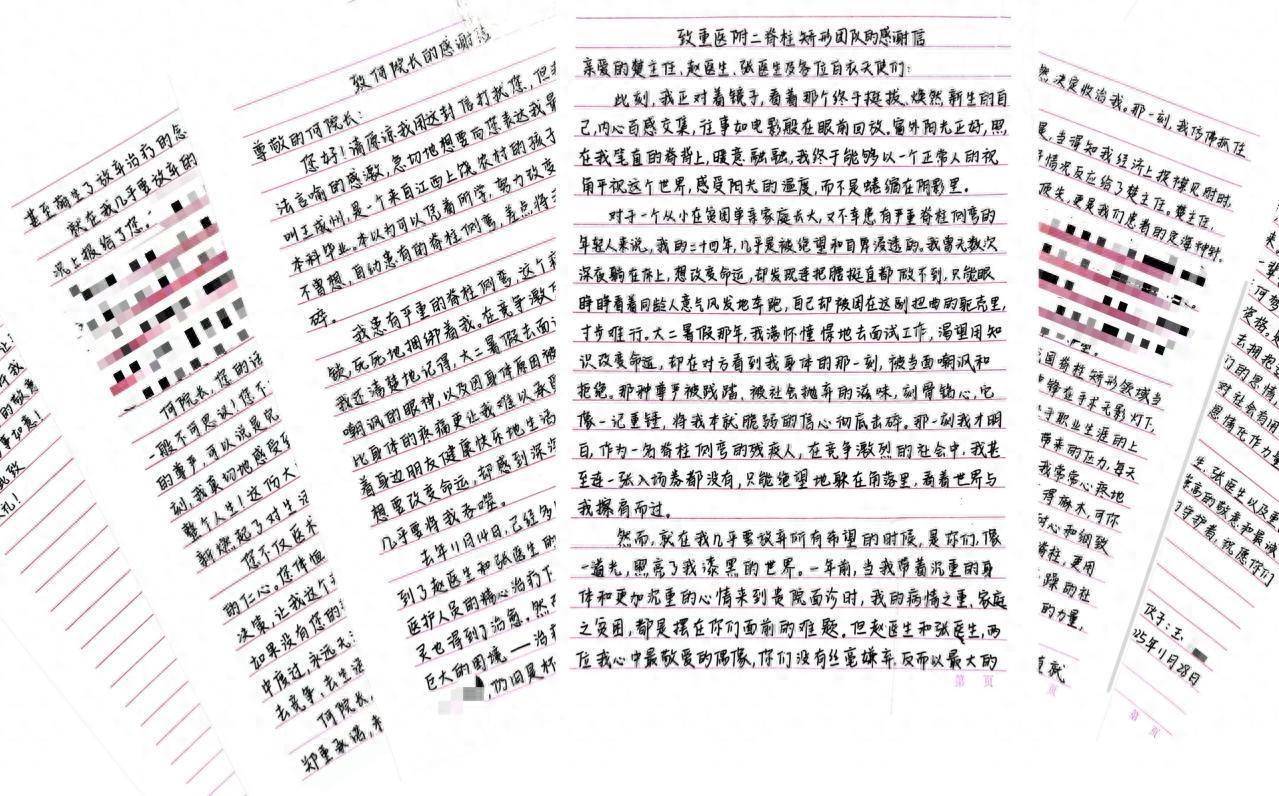 甚至萌生了放弃治疗的念
就在我几乎要放弃的
况上报给了您。
何院长,您的话
一般不可思议!您不
的尊严,可以说是
刻,我真切地感受到
整个人生!这份大
新燃起了对生活
您不仅医术
的仁心。您体恤
决策,让我这个
如果没有您的
中度过,永远无
去竞争,去生活
何院长,
郑重承诺,
致何院长的感谢信
尊敬的何院长:
您好!请原谅我用这封信打扰您,但
法言喻的感激,急切地想要向您表达我最
叫王成州,是一个来自江西上饶农村的孩子
本科毕业。本以为可以凭着所学,努力改变
不曾想,自幼患有的脊柱侧弯,差点将
碎。
我患有严重的脊柱侧弯,这个
锁,死死地捆绑着我。在竞争激
我还清楚地记得,大二暑假去面
嘲讽的眼神,以及因身体原因被
比身体的疼痛更让我难以承受
着身边朋友健康快乐地生活
想要改变命运,却感到深深
几乎要将我吞噬。
去年11月14日,已经多
到了赵医生和张医生的
医护人员的精心治疗下
灵也得到了治愈。然
巨大的困境——治疗
,仍旧是杯
致重医附二脊柱矫形团队的感谢信
亲爱的楚主任、赵医生、张医生及各位白衣天使们:
此刻,我正对着镜子,看着那个终于挺拔、焕然新生的自
己,内心百感交集,往事如电影般在眼前回放。窗外阳光正好,照
在我笔直的脊背上,暖意融融,我终于能够以一个正常人的视
角平视这个世界,感受阳光的温度,而不是蜷缩在阴影里。
对于一个从小在贫困单亲家庭长大,又不幸患有严重脊柱侧弯的
年轻人来说,我的二十四年,几乎是被绝望和自卑浸透的。我曾无数次
深夜躺在床上,想改变命运,却发现连把腰挺直都做不到,只能眼
睁睁看着同龄人意气风发地奔跑,自己却被困在这副扭曲的躯壳里,
寸步难行。大二暑假那年,我满怀憧憬地去面试工作,渴望用知
识改变命运,却在对方看到我身体的那一刻,被当面嘲讽和
拒绝。那种尊严被践踏、被社会抛弃的滋味,刻骨铭心,它
像一记重锤,将我本就脆弱的信心彻底击碎。那一刻我才明
白,作为一名脊柱侧弯的残疾人,在竞争激烈的社会中,我甚
至连一张入场券都没有,只能绝望地躲在角落里,看着世界与
我擦肩而过。
然而,就在我几乎要放弃所有希望的时候,是你们,像
一道光,照亮了我漆黑的世界。一年前,当我带着沉重的身
体和更加沉重的心情来到贵院面诊时,我的病情之重、家庭
之贫困,都是摆在你们面前的难题。但赵医生和张医生,两
位我心中最敬爱的偶像,你们没有丝毫嫌弃,反而以最大的
第 页
然决定收治我。那一刻,我仿佛抓住
当得知我经济上捉襟见肘时,
情况反应给了楚主任。楚主任,
顶尖,更是我们患者的定海神针。
国脊柱矫形领域与
在手术无影灯下,
乎职业生涯的上
带来的压力,每天
我常常心疼地
得麻木,可你
耐心和细致
脊柱,更用
躁动社
的力量,
页
去拥抱
们的恩情
对社会有用
恩情化作力量
生、张医生以及
崇高的敬意和最诚
守护者,祝愿你们
伙子:王
25年11月28日
第 页